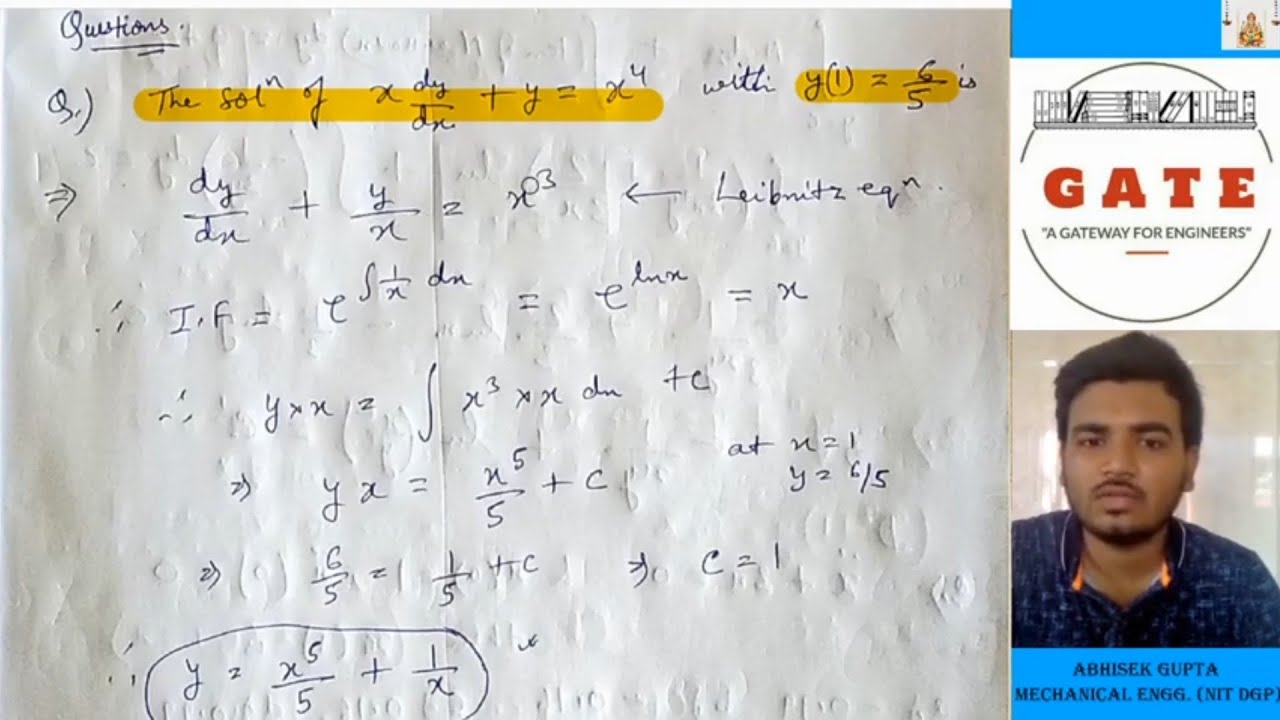 Questions.
Q.) The solⁿ of x dy/dx + y = x⁴ with y(1) = 6/5 is
⇒ dy/dx + y/x = x³ ← Leibnitz eqⁿ.
∴ I.F = e^∫(1/x) dx = e^lnx = x
∴ y × x = ∫ x³ × x dx + C
at x = 1
⇒ yx = x⁵/5 + C
y = 6/5
⇒ 6/5 = 1/5 + C ⇒ C = 1
∴ y = x⁵/5 + 1/x
GATE
"A GATEWAY FOR ENGINEERS"
ABHISEK GUPTA
MECHANICAL ENGG. (NIT DGP)